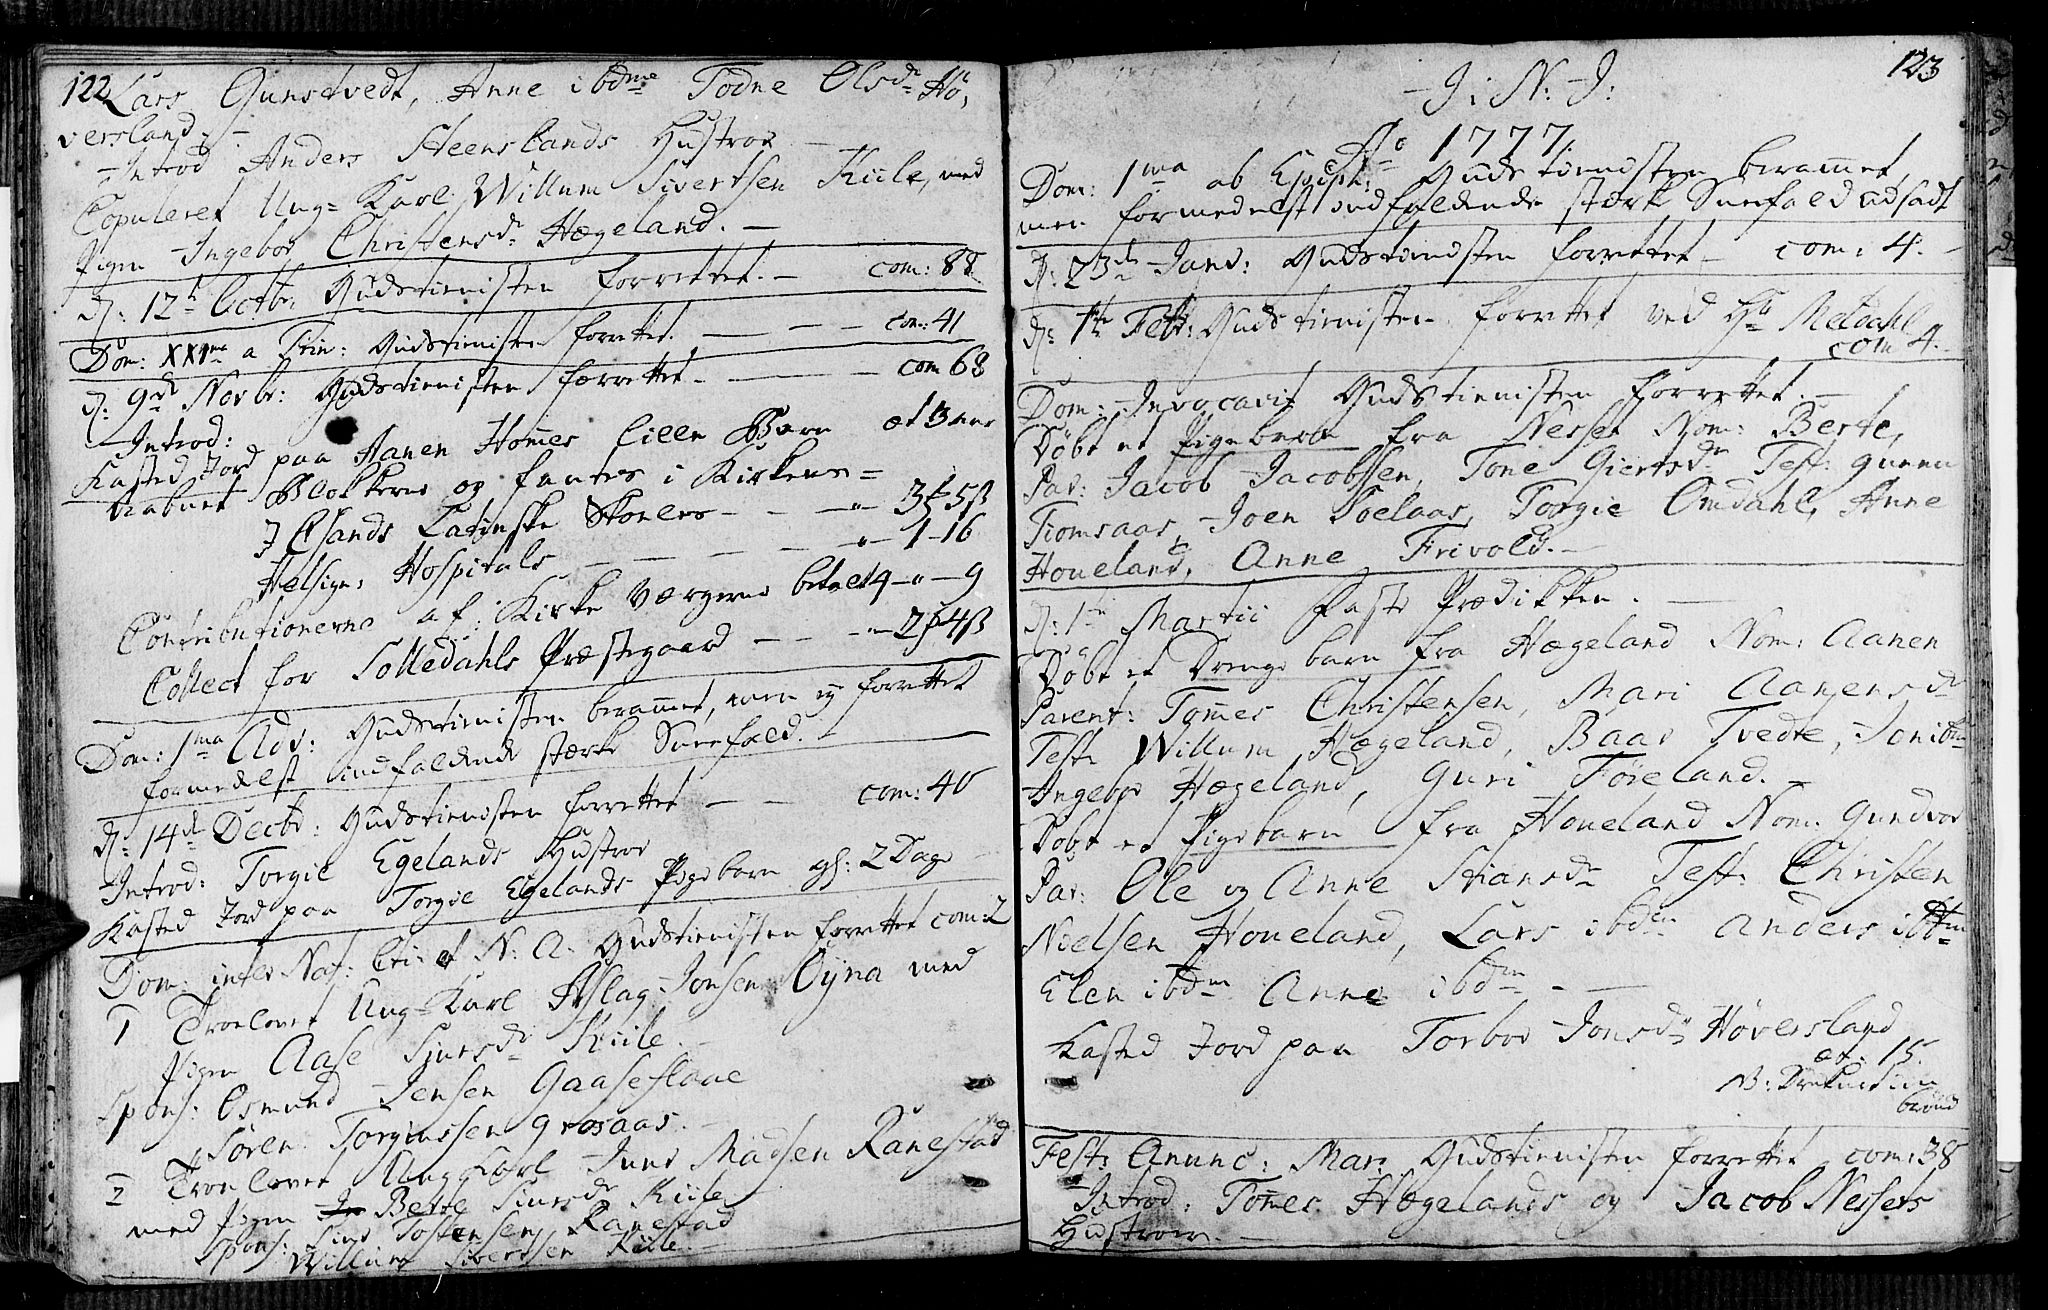 122
Lars Gunstvedt, Anne ibdme Todne Olsdr Hö,
versland; -
Introd Anders Steenslands Hustroe
Copuleret Ung= Karl Willum Sivertsen Kiile, med
Pigen Ingebor Christensdr Hægeland. -
D: 12te Octbr: Gudstienisten forrettet. - com: 88
Dom: XXIma a Trin: Gudstienisten forrettet. - - - com: 41
D: 9de Novbr: Gudstienisten forrettet. - - - com 68
Introd:
Kasted Jord paa Aanen Homes lille Barn æt 3 aar
Blokkerne og i Kirkens =
J Clsands Latinske Skoeles - - - " - 3 f 5 ß
Helsign: Hospitals - - - - " - 1 - 16
Contributionerne af Kirke Værgerne betalt 4 - " - 9
Collect for Solledahls Præstegaard - - - " - 2 f 4 ß
Dom: 1ma Adv: Gudstienisten beramet, men ey forrettet
formedelst indfaldende stærke Sneefald.
D: 14de Decbr: Gudstienisten forrettet - - com: 40
Introd: Torgie Egelands Hustroe
Kasted Jord paa Torgie Egelands Pigebarn gl: 2 Dage
Dom: inter Nat: Cti et N: A: Gudstienisten forrettet com: 2
1 Troelovet Ung= Karl Aslag Jonsen Öyna med
Pigen Aase Siursdr Kiile.
Spons: Osmund Jensen Gaaseflaae
Sören Torgiussen Grosaas. -
2 Troelovet Ung Karl Juns Madsen Ranestad
med Pigen Berte Siursdr Kiile
Spons: Siur Tostensen Ranestad
Willum Sivertsen Kiile. -
123
J: N: J:
Ao 1777.
Dom: 1ma ab Epiph: Gudstienisten beramet,
men formedelst indfaldende stærk Sneefald udsadt
D: 23de Janv: Gudstienisten forrettet - com: 4. -
D: 1te Febr: Gudstienisten forrettet ved Hr Meldahl
com 4.
Dom: Invocavit Gudstienisten forrettet. -
Döbt et Pigebarn fra Nesset Nom: Berte,
Par: Jacob Jacobsen, Tone Giertsdr Test: Gunen
Tiomsaas, Joen Poelaas, Torgie Omdahl, Anne
Houeland, Anne Frivold. -
D: 1te Martii Faste Prædikken. -
Döbt et Drenge barn fra Hægeland Nom: Aanen
Parent: Tomes Christensen, Mari Aanensdr
Test: Willum Hægeland, Baar Tvedte, Jon ibm
Ingebor Hægeland, Guri Föreland. -
Döbt et Pigebarn fra Houeland Nom: Gundvor
Par: Ole og Anne Stiansdr Test: Christen
Nielsen Houeland, Lars ibdm Anders ibdm
Elen ibdm Anne ibdm - -
Kasted Jord paa Torbor Jonsdr Höversland
æt: 15.
NB: Druknet i en
brönd
Fest: Anunc: Mar: Gudstienisten forrettet com: 38
Introd: Tomes Hægelands og Jacob Nessets
Hustroer. -